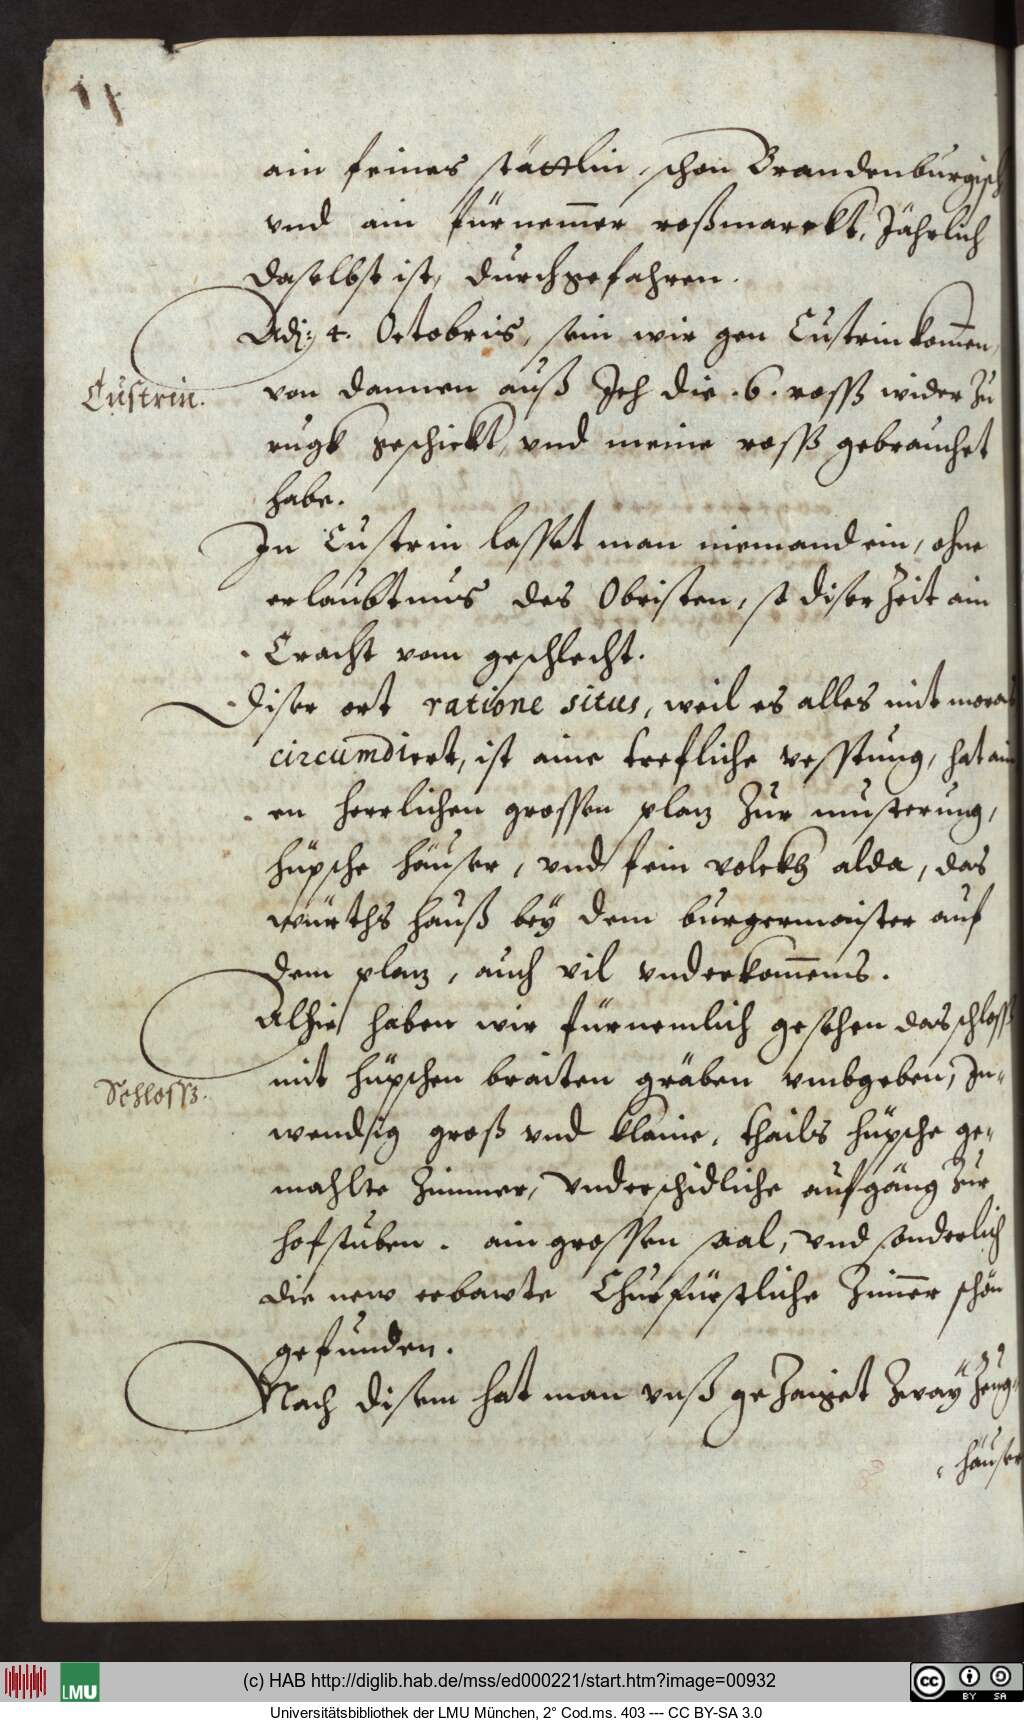 ain feines stättlin, schon Brandenburgisch
vnd ain fürnemmer roßmarckt, Jährlich
daselbst ist, durchgefahren.
Adj: 4. Octobris, sein wir gen Custrin kommen,
Custrin.
von dannen auß Ich die .6. ross wider zu
rugk geschickt, vnd meine ross gebrauchet
habe.
In Custrin lasset man niemand ein, ohne
erlaubtnus des Obristen, so diser Zeit ain
Cracht vom geschlecht.
Diser ort ratione situs, weil es alles mit moras
circumdiert, ist aine trefliche vesstung, hat ain
en herrlichen grossen platz zur musterung,
hüpsche häuser, vnd fein volckh alda, das
würths hauß bey dem burgermaister auf
dem platz, auch vil vnderkommens.
Alhie haben wir fürnemlich gesehen das schloss
Schloss.
mit hüpschen braiten gräben vmbgeben, In-
wendsig groß vnd klaine, thails hüpsche ge-
mahlte Zimmer, vnderschidliche aufgäng zur
hofstuben. ain grossen saal, vnd sonderlich
die new erbawte Churfürstliche Zimmer schön
gefunden.
Nach disem hat man vnß gezaiget zway Zeug-
häuser
(c) HAB http://diglib.hab.de/mss/ed000221/start.htm?image=00932
LMU
CC BY SA
Universitätsbibliothek der LMU München, 2° Cod.ms. 403 --- CC BY-SA 3.0